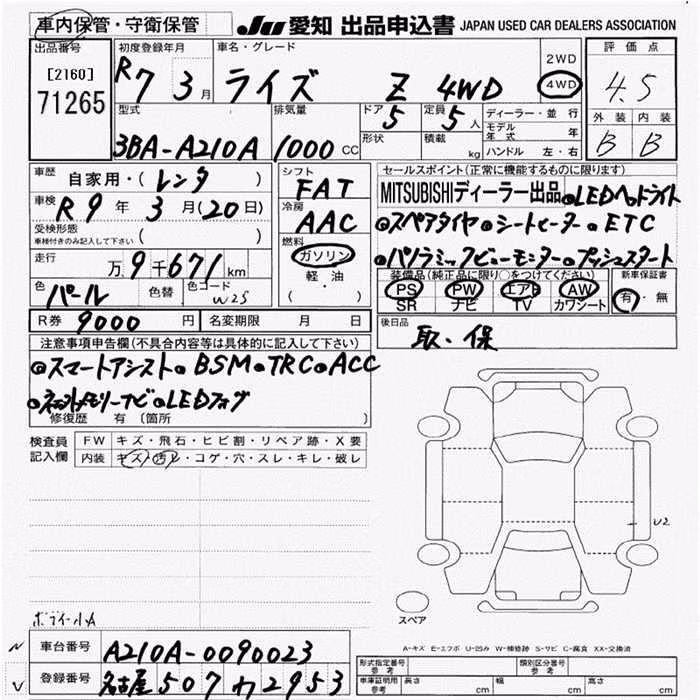 車内保管・守衛保管 JU 愛知 出品申込書 JAPAN USED CAR DEALERS ASSOCIATION
出品番号 初度登録年月 車名・グレード 2WD 評価点
[2160] R7 3月 ライズ Z 4WD 4WD 4.5
71265 型式 排気量 ドア 定員 ディーラー・並行 外装 内装
3BA-A210A 1000CC 5 5人 モデル年式 年 B B
形状 積載 kg ハンドル 左・右
車歴 自家用・(レンタ) シフト FAT セールスポイント(正常に機能するものに限ります)
車検 R9年3月(20日) 冷房 AAC MITSUBISHIディーラー出品 LEDヘッドライト
受検形態 車検付きのみ記入して下さい ( ) 燃料 スペアタイヤ シートヒーター ETC
走行 万9千671km ガソリン パノラミックビューモニター プッシュスタート
軽・油 装備品(純正品に限り○をつけてください) 新車保証書
色 パール 色替 色コード W25 ( ) PS PW エアB AW 有・無
SR ナビ TV カワシート
R券 9000円 名変期限 月 日 後日品 取・保
注意事項申告欄(不具合内容等は具体的に記入して下さい)
スマートアシスト BSM TRC ACC
ネットメモリーナビ LEDフォグ
修復歴 有 〔箇所 〕
検査員記入欄 FW キズ・飛石・ヒビ割・リペア跡・X要
内装 キズ・汚レ・コゲ・穴・スレ・キレ・破レ
U2
スペア
A-キズ E-エクボ U-凹み W-補修跡 S-サビ C-腐食 XX-交換済
車台番号 A210A-0090023 形式指定番号 参考 類別区分番号 参考
登録番号 名古屋 507 カ 2953 車庫証明用 参考 長さ cm 幅 cm 高さ cm